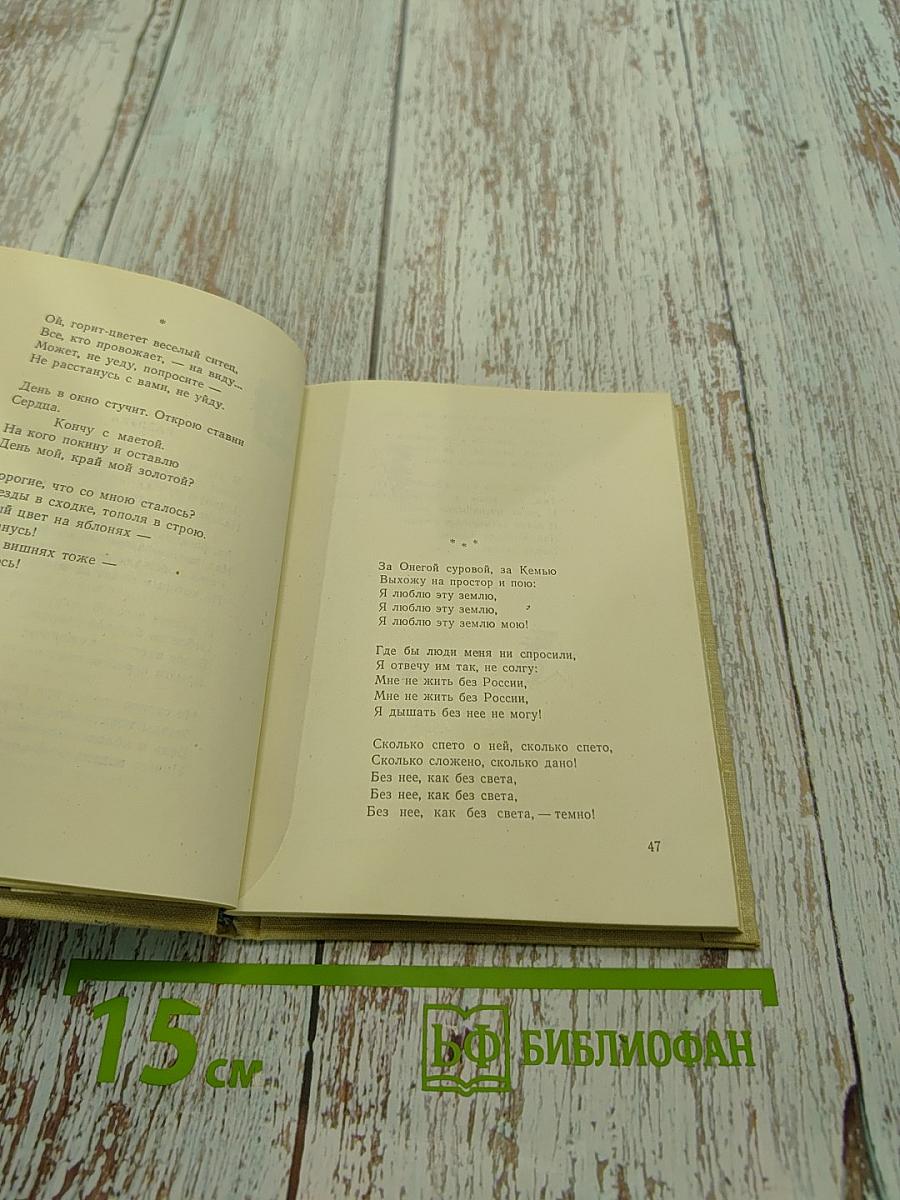 *
Ой, горит-цветет веселый ситец,
Все, кто провожает, — на виду...
Может, не уеду, попросите —
Не расстанусь с вами, не уйду.
День в окно стучит. Открою ставни
Сердца.
Кончу с маетой.
На кого покину и оставлю
День мой, край мой золотой?
что со мною сталось?
в сходке, тополя в строю.
цвет на яблонях —
вишнях тоже —
* * *
За Онегой суровой, за Кемью
Выхожу на простор и пою:
Я люблю эту землю,
Я люблю эту землю,
Я люблю эту землю мою!
Где бы люди меня ни спросили,
Я отвечу им так, не солгу:
Мне не жить без России,
Мне не жить без России,
Я дышать без нее не могу!
Сколько спето о ней, сколько спето,
Сколько сложено, сколько дано!
Без нее, как без света,
Без нее, как без света,
Без нее, как без света, — темно!
47
15 см
БФ БИБЛИОФАН